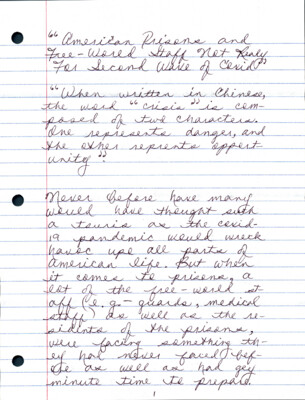 “American Prisons and
Free-World Staff Not Ready
For Second Wave of Covid”
“When written in Chinese,
the word “crisis” is com-
posed of two characters.
One represents danger, and
the other reprients opport
unity”.
Never before have many
would have thought such
a as the covid-
19 pandemic would wreck
havoc upe all parts of
American life. But when
it comes to prisons, a
lot of the free-world st-
aff (e.g.- guards, medical
staff) as well as the re-
sidents of the prisons,
were facing something th-
ey had never faced bef-
ore as well as had
minute time to prepare.
1